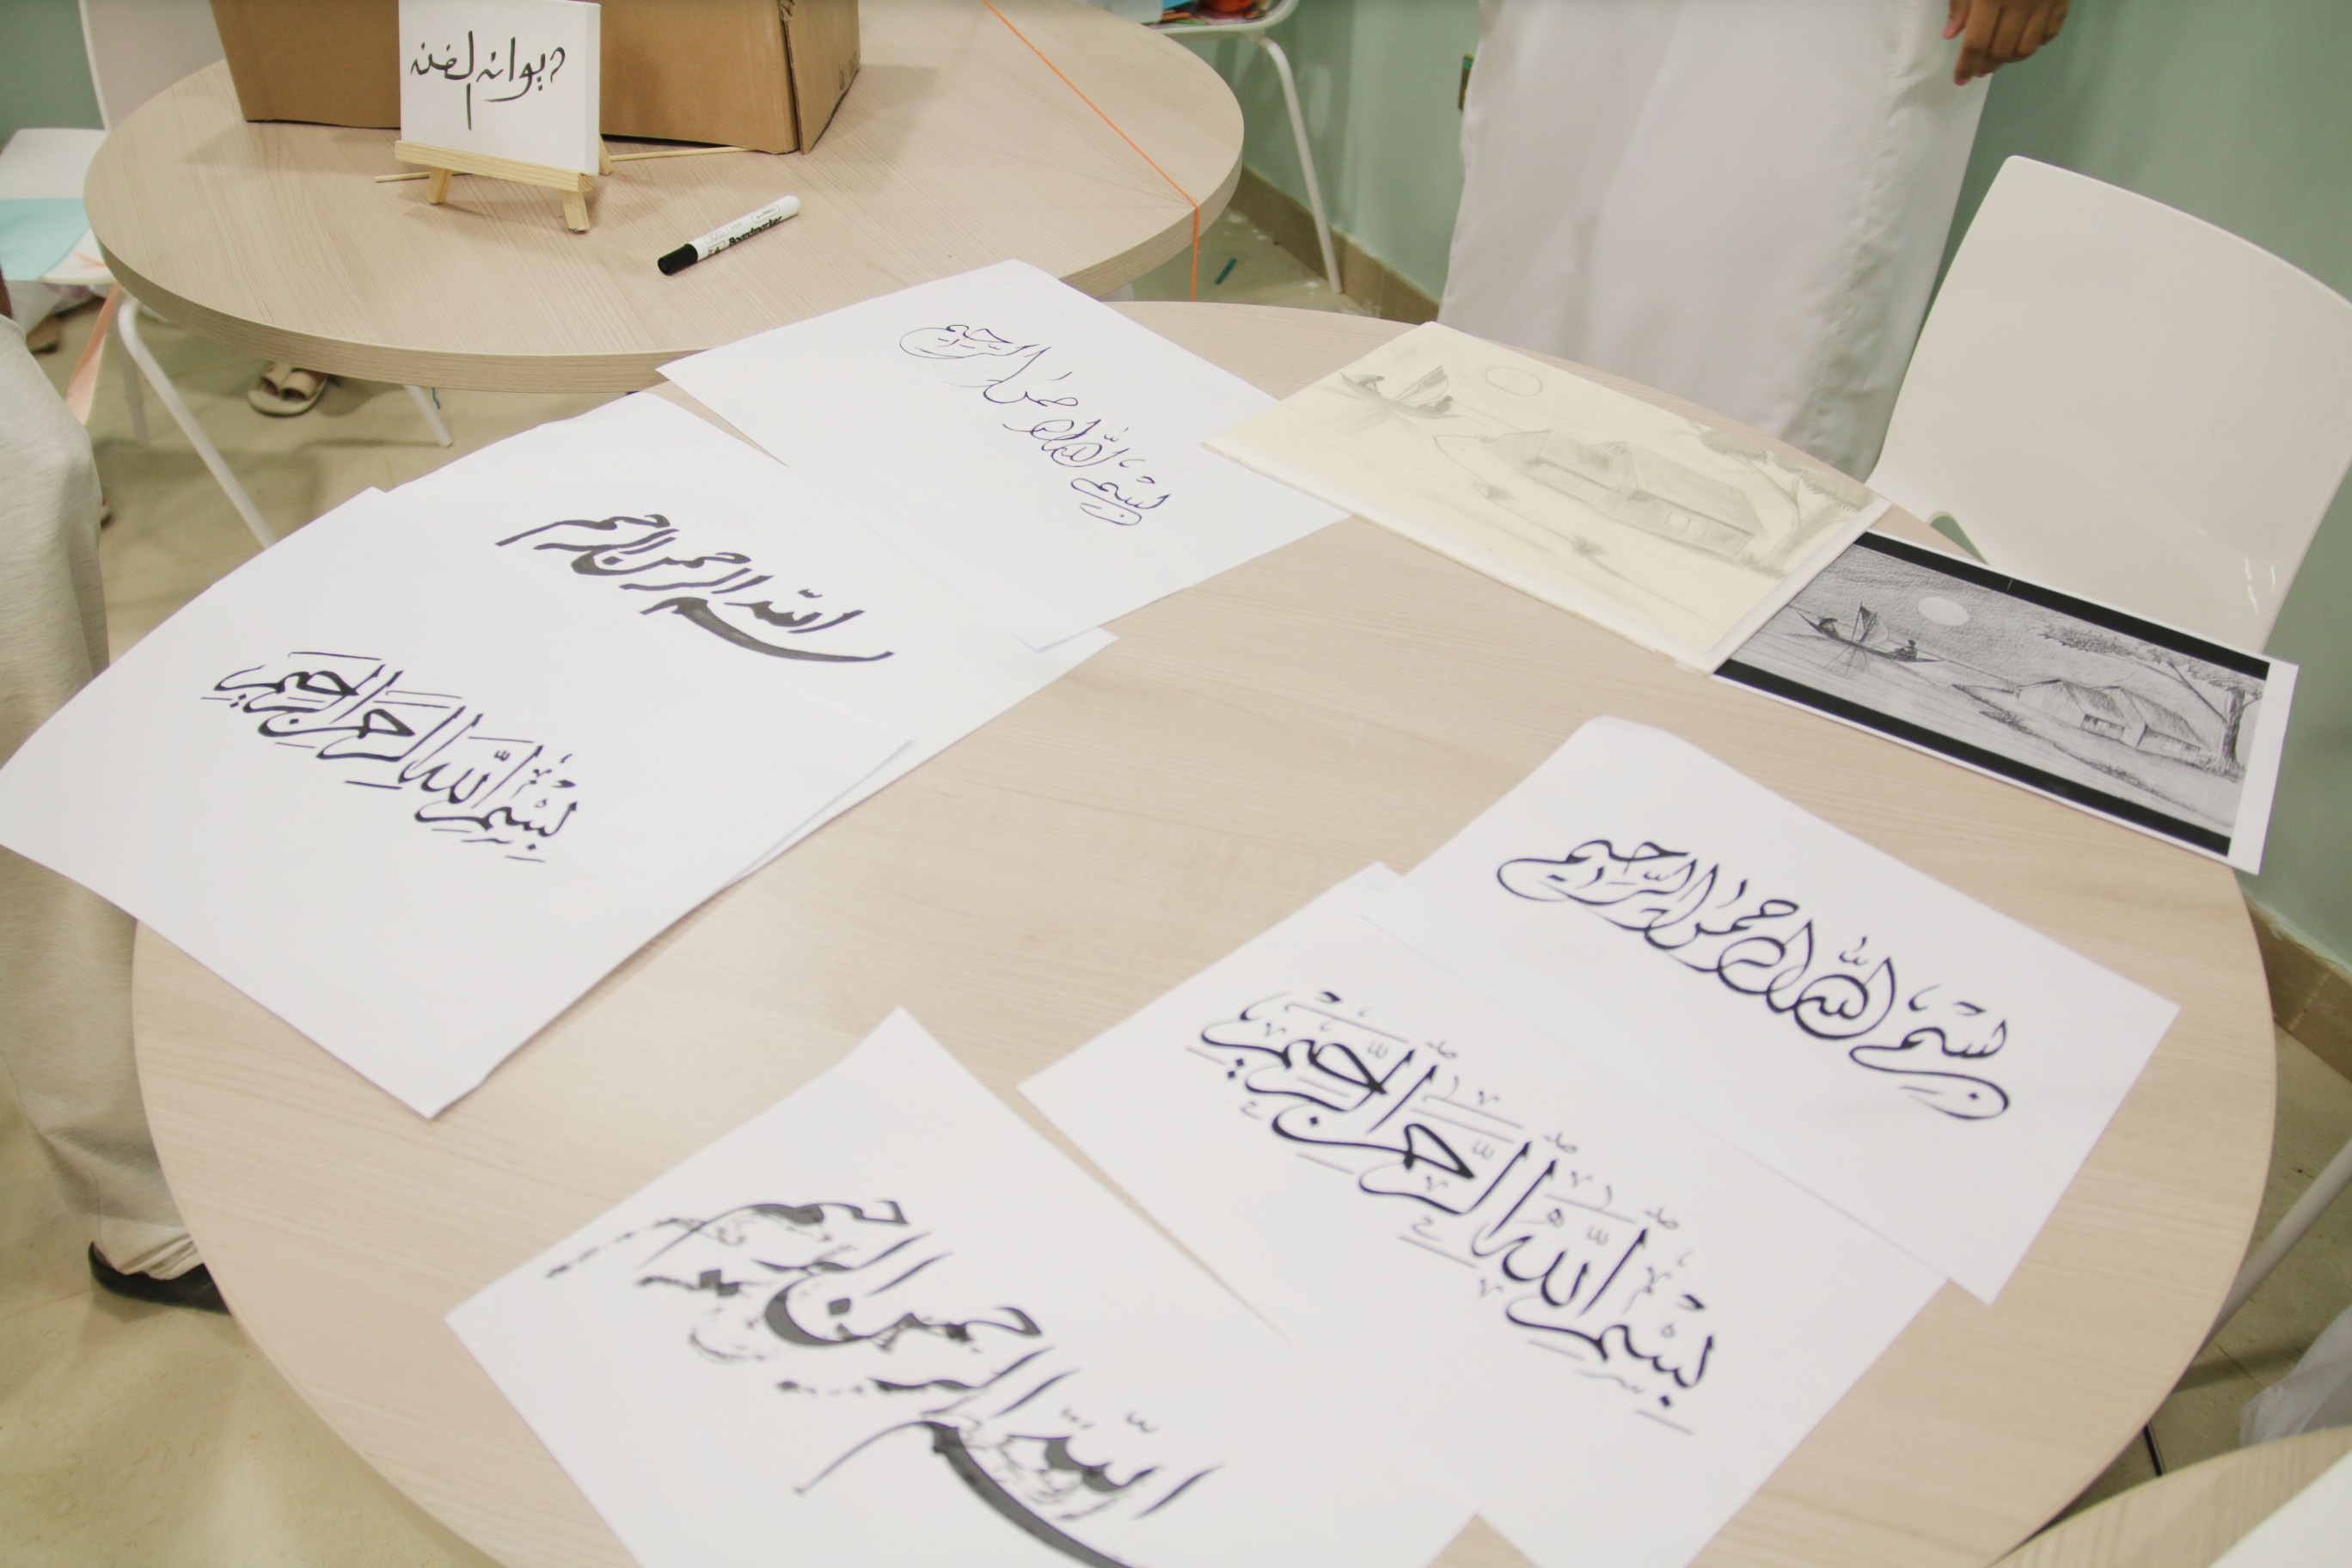 ديوانه لفنه
Boardmarker
بسم الله الرحمن الرحيم
بسم الله الرحمن الرحيم
بِسْمِ اللَّهِ الرَّحمن الرَّحيمِ
بسم الله الرحمن الرحيم
بِسْمِ اللَّهِ الرَّحْمنِ الرَّحِيمِ
بسم الله الرحمن الرحيم